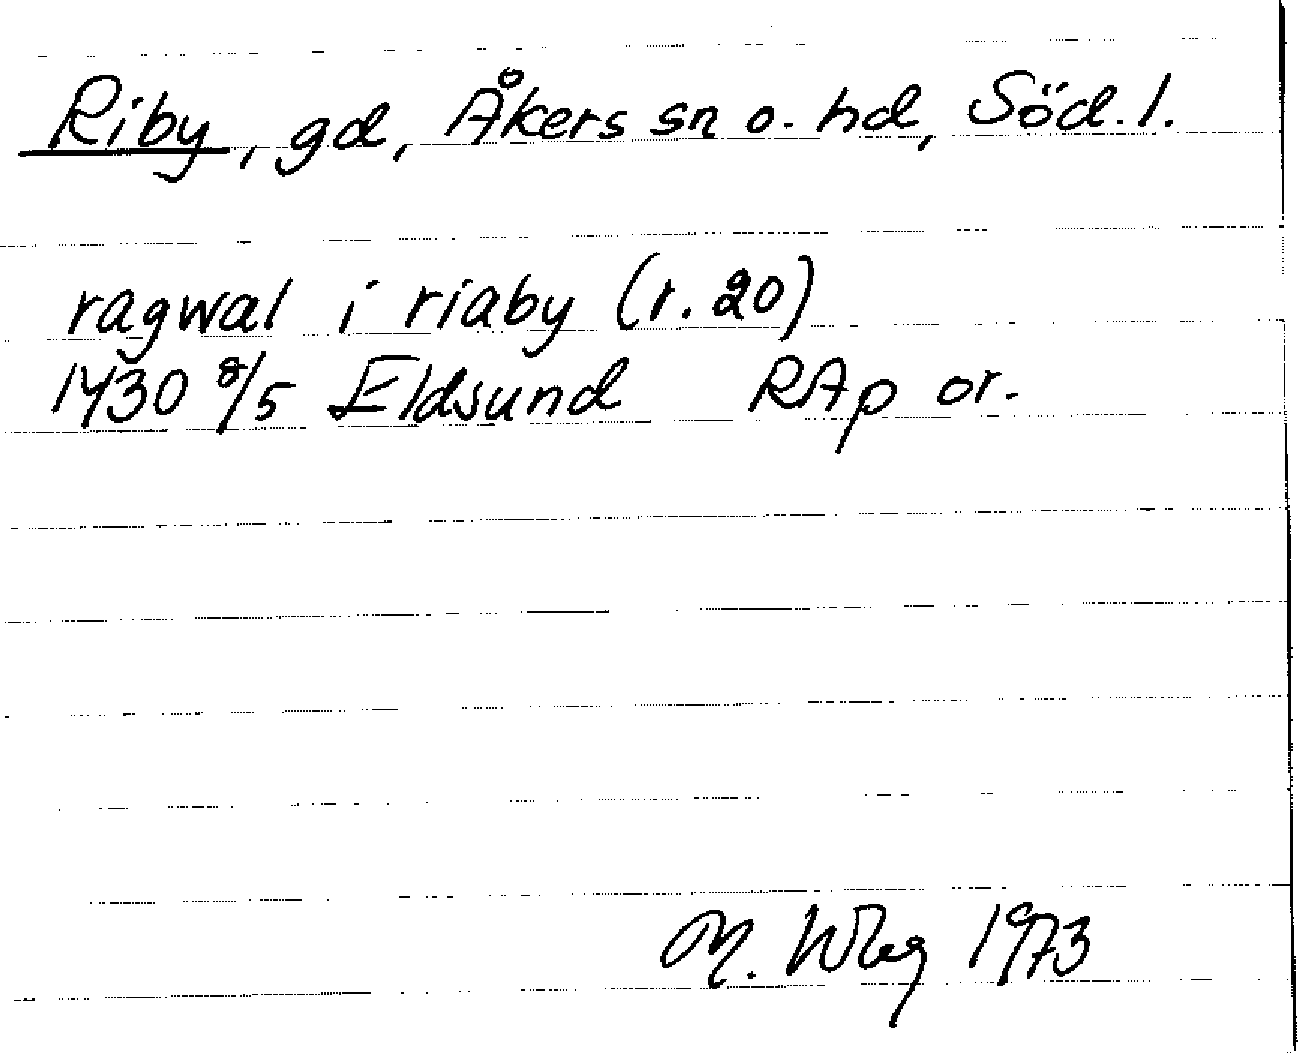 Riby, gd, Åkers sn o. hd, Söd.l.
ragwal i riaby (r. 20)
1430 8/5 Eldsund RAp or.
M. Wbg 1973